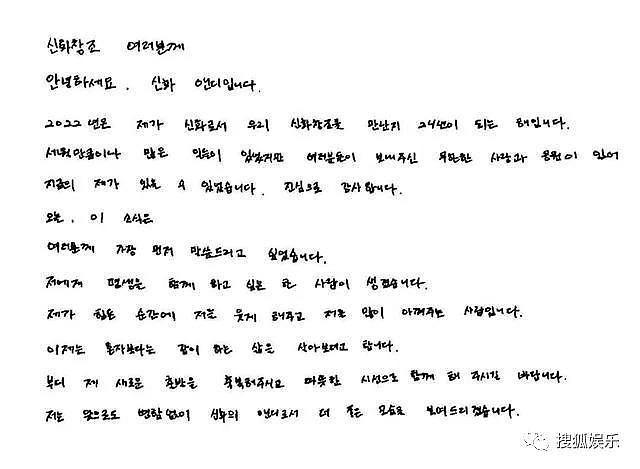 신화창조 여러분께
안녕하세요. 신화 앤디입니다.
2022년은 제가 신화로서 우리 신화창조를 만난지 24년이 되는 해입니다.
세월만큼이나 많은 일들이 있었지만 여러분들이 보내주신 무한한 사랑과 응원이 있어
지금의 제가 있을 수 있었습니다. 진심으로 감사합니다.
오늘, 이 소식은
여러분께 가장 먼저 말씀드리고 싶었습니다.
저에게 평생을 함께 하고 싶은 한 사람이 생겼습니다.
제가 힘든 순간에 저를 웃게 해주고 저를 많이 아껴주는 사람입니다.
이제는 혼자보다는 같이 하는 삶을 살아보려고 합니다.
부디 제 새로운 출발을 축복해주시고 따뜻한 시선으로 함께 해 주시길 바랍니다.
저는 앞으로도 변함없이 신화의 앤디로서 더 좋은 모습으로 보여드리겠습니다.
搜狐娱乐